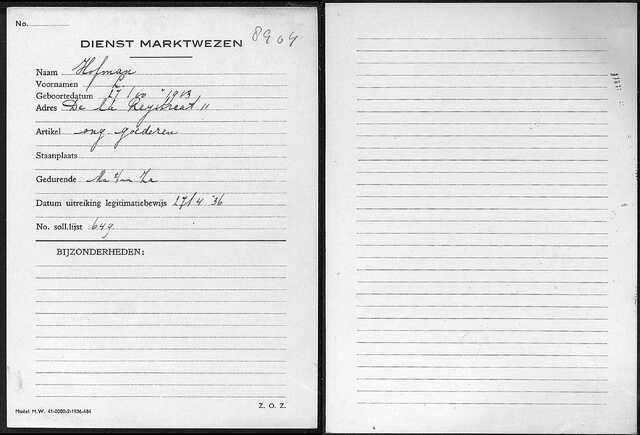 No.
8904
DIENST MARKTWEZEN
Naam Hofman
Voornamen
Geboortedatum 27/10 - 1903
Adres De la Reystraat 11
Artikel ong. goederen
Staanplaats
Gedurende Ma t/m Za
Datum uitreiking legitimatiebewijs 27/4 '36
No. soll.lijst 649.
BIJZONDERHEDEN:
Model M.W. 41-2000-2-1936-484
Z. O. Z.